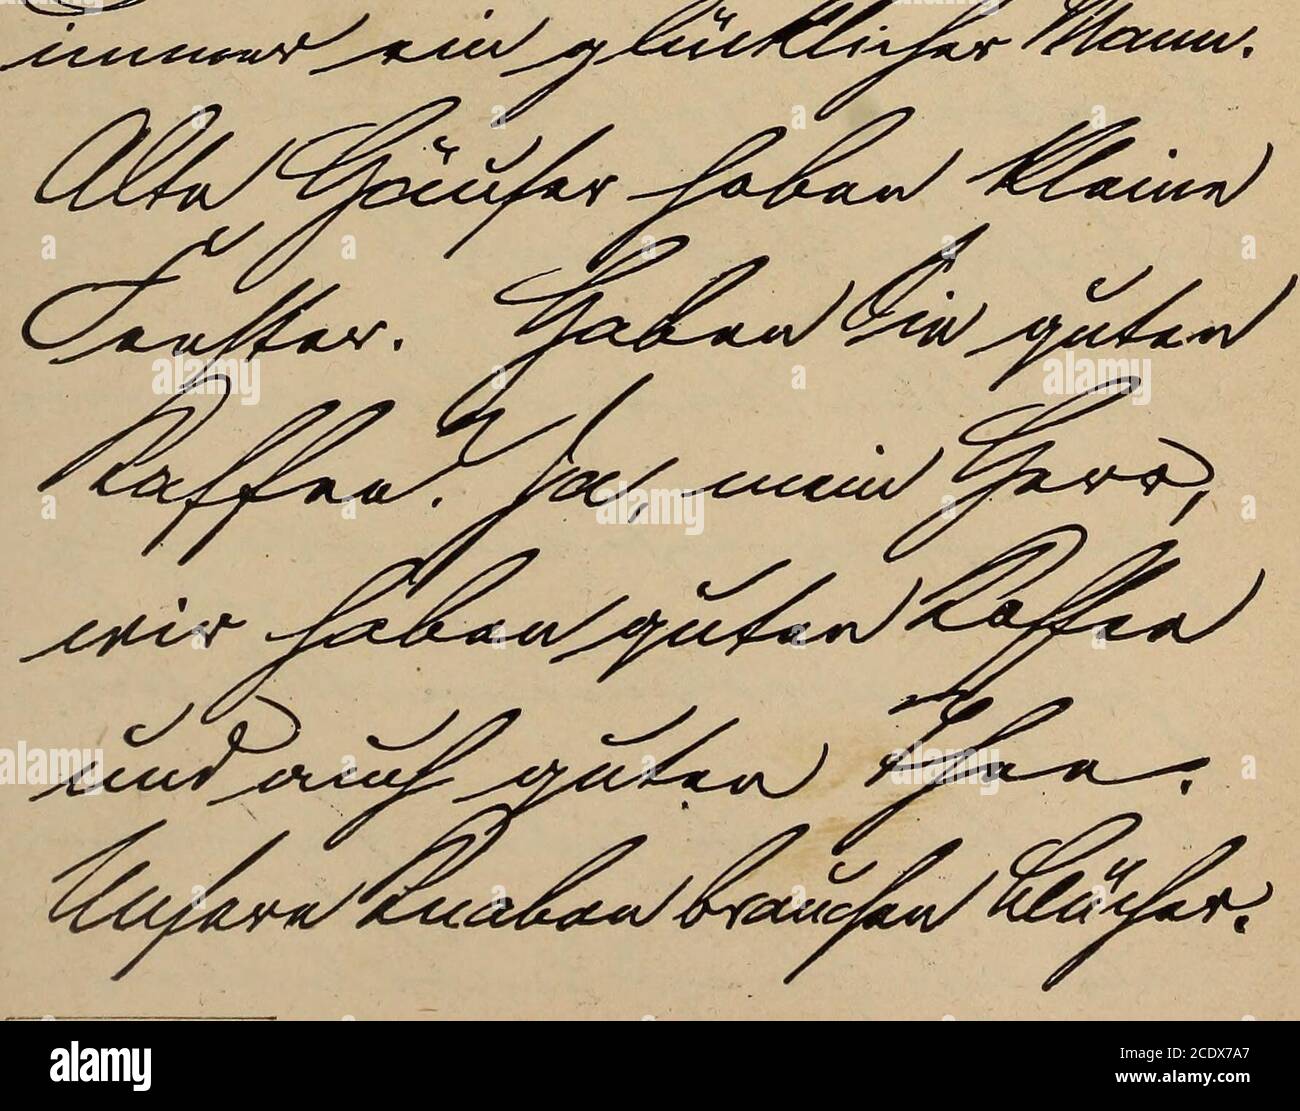 immer ein glücklicher Mann.
Alte Häuser haben kleine
Fenster. Haben Sie guten
Kaffee? Ja, mein Herr,
wir haben guten Kaffee
und auch guten Thee.
Unsere Knaben brauchen Bücher.
alamy
Image ID: 2CDX7A7
www.alamy.com